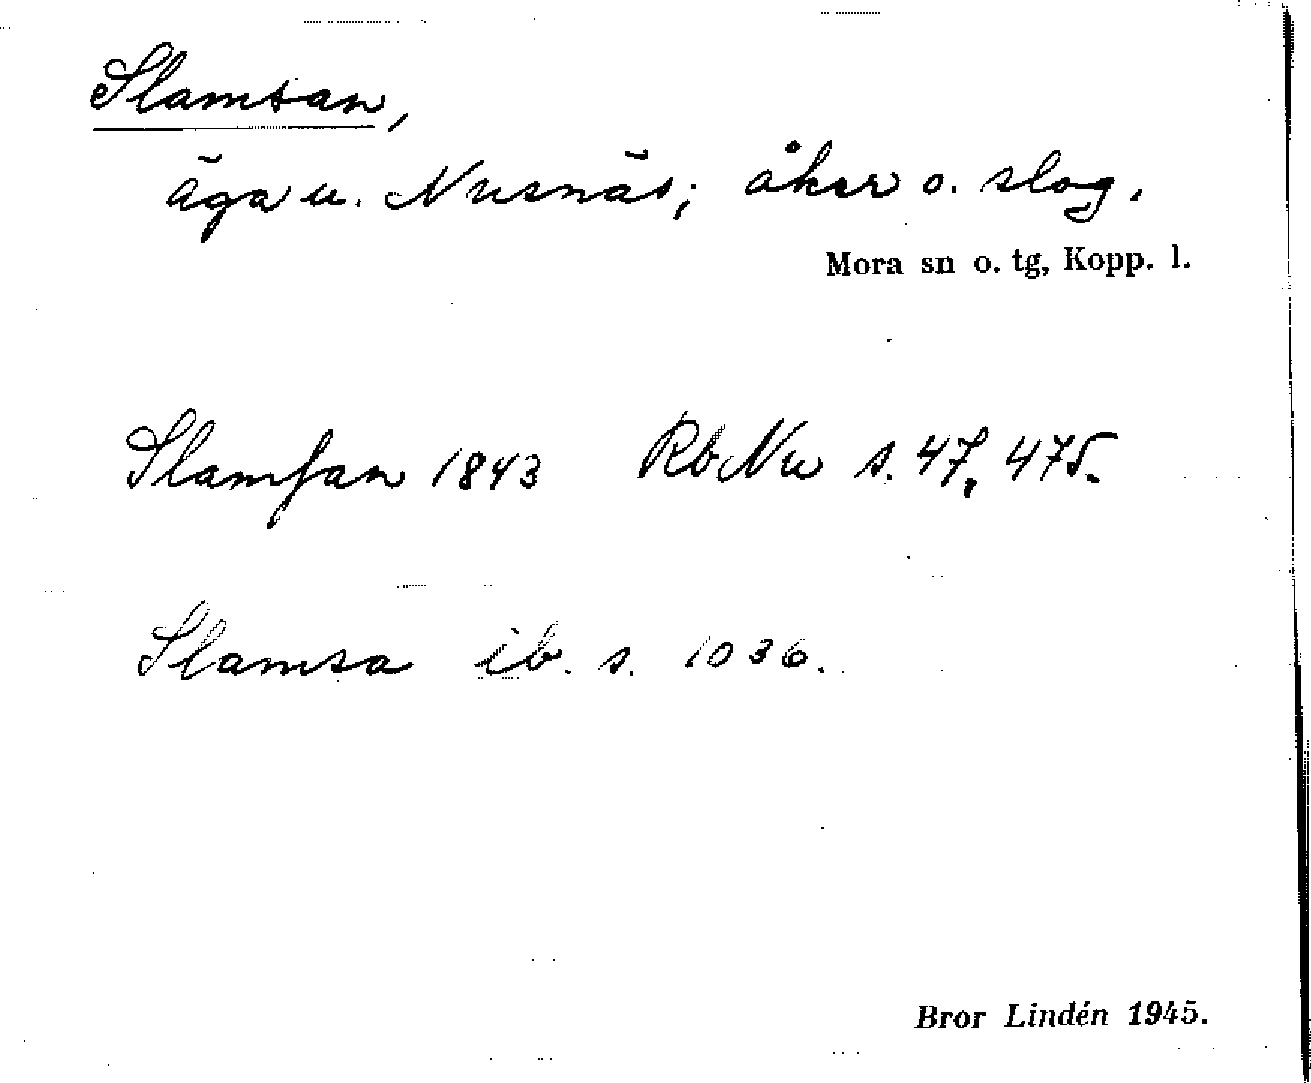 Slamsan,
äga u. Nusnäs; åker o. slog.
Mora sn o. tg, Kopp. l.
Slamſan 1843 Rb Nu s. 47, 475.
Slamsa ib. s. 1036.
Bror Lindén 1945.